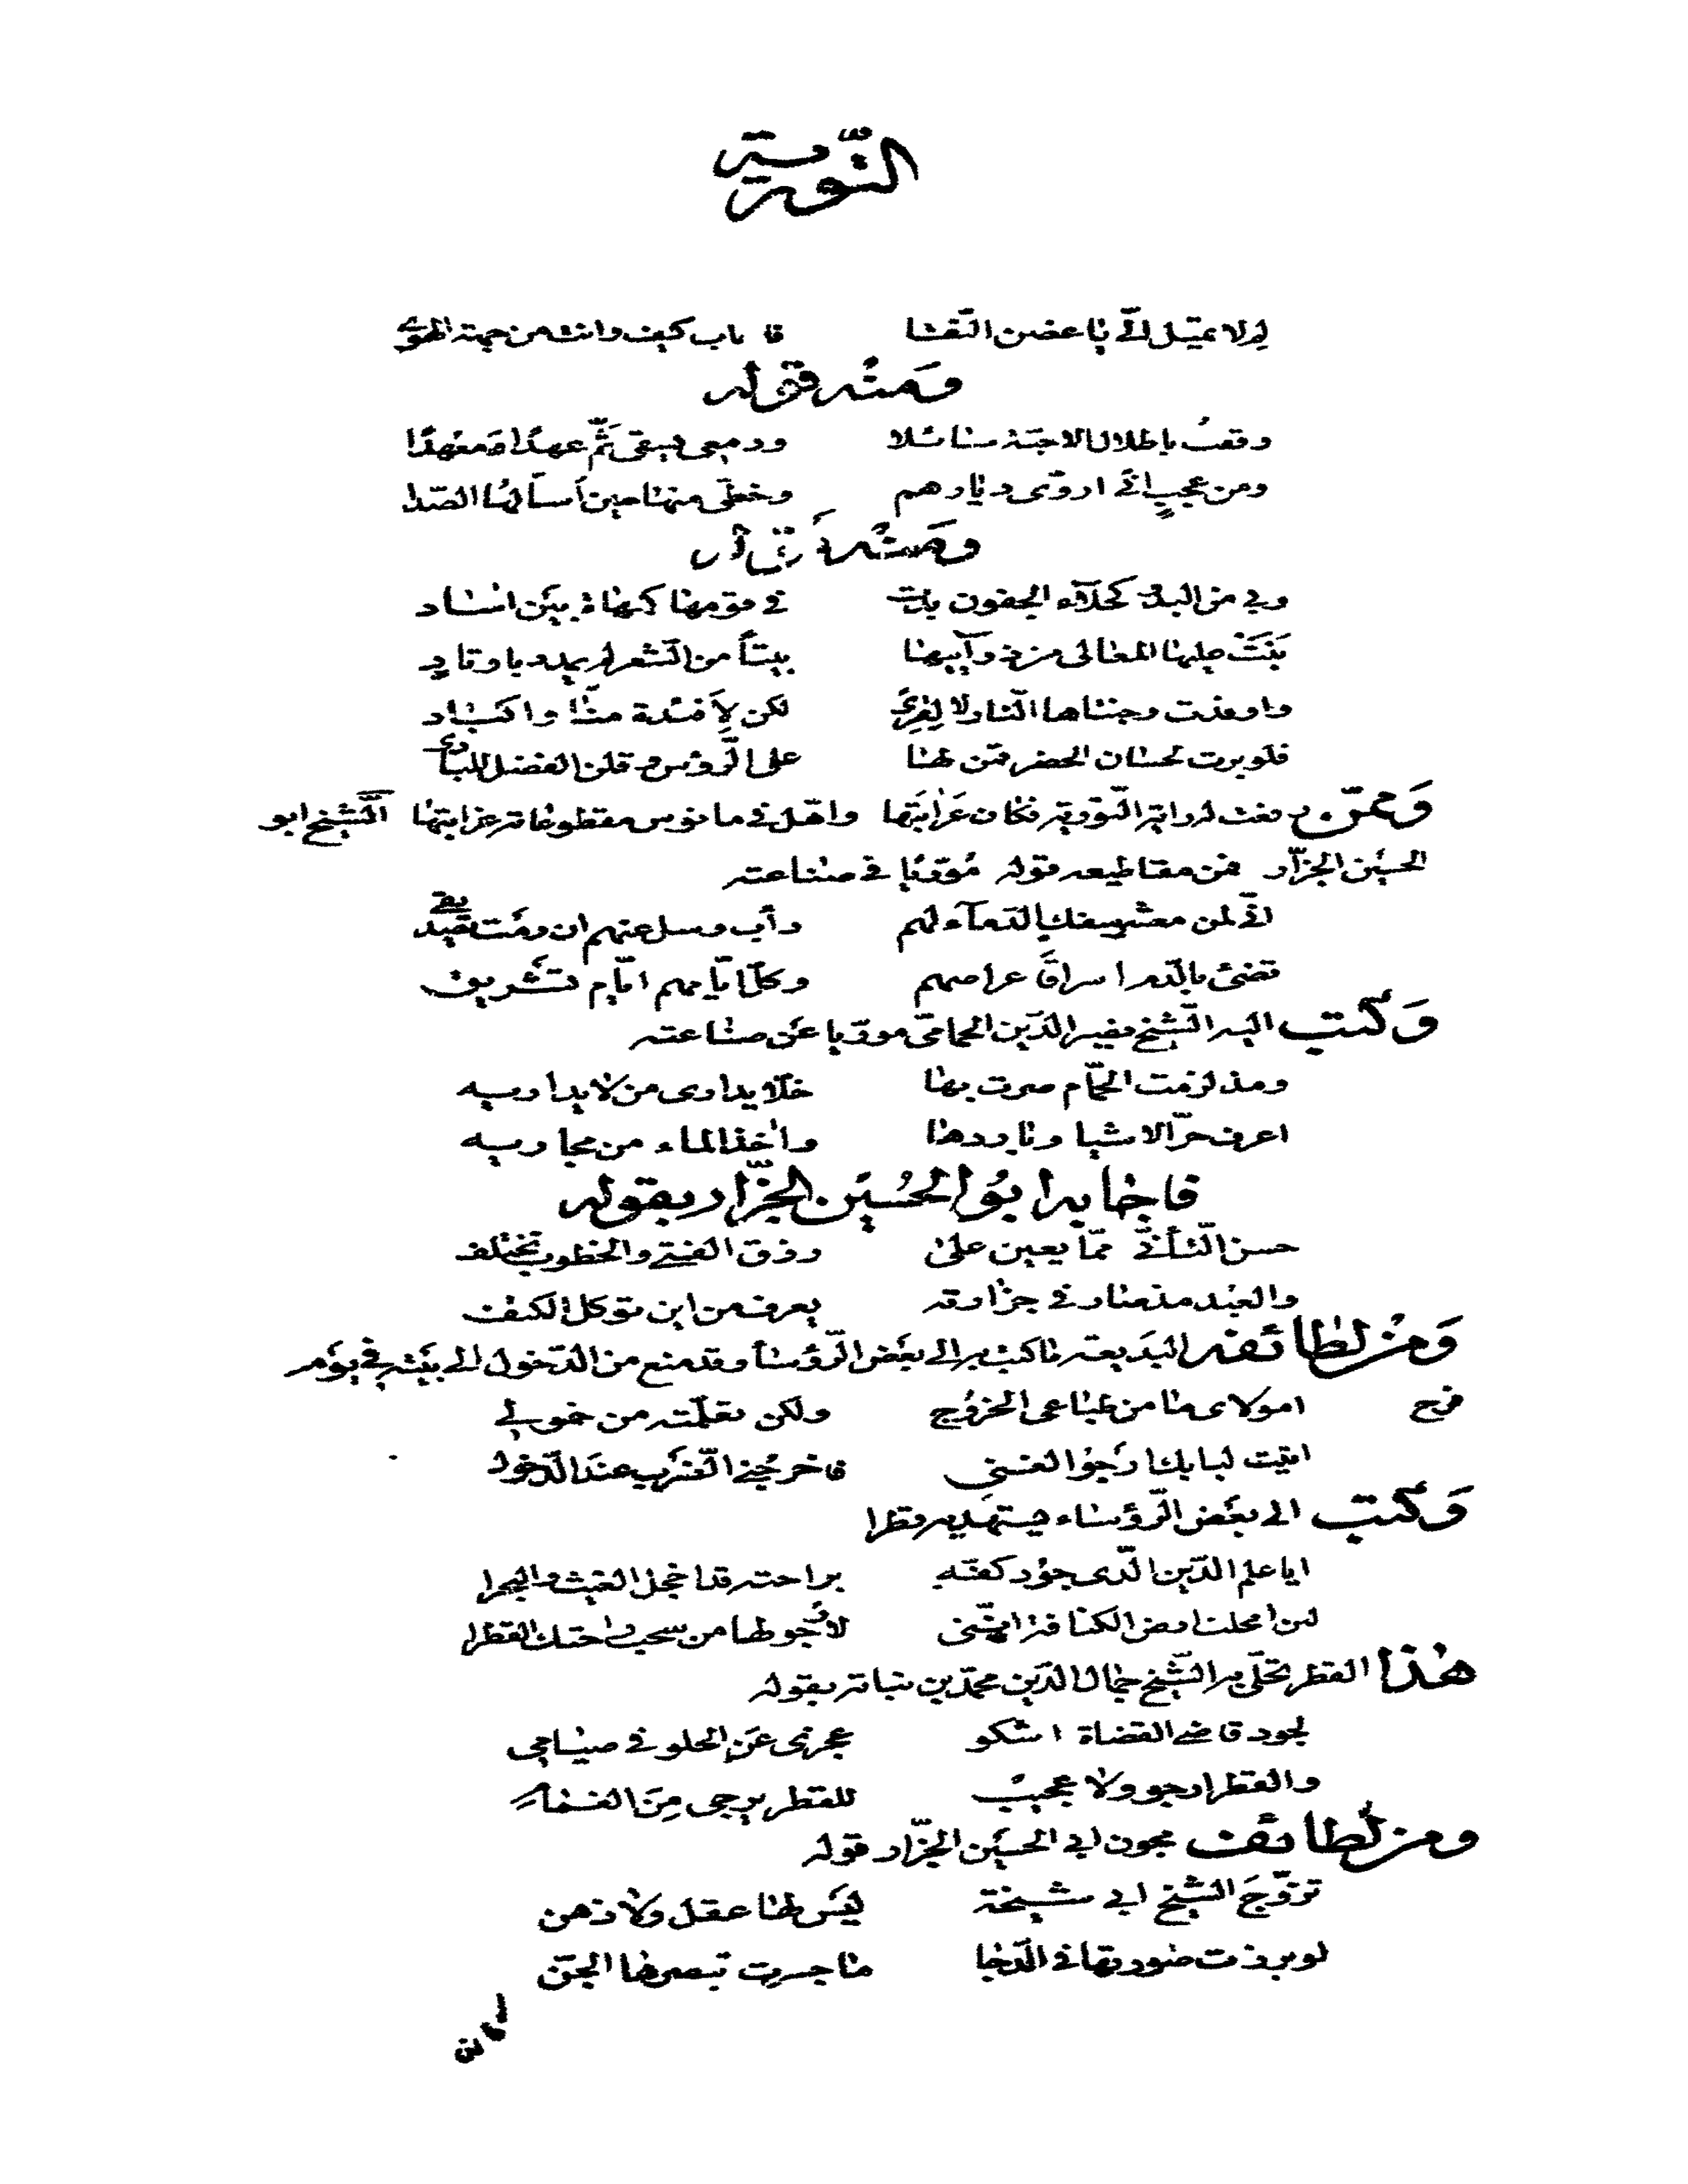 التورية
لم لا تميل الي يا غصن النقا فاجاب كيف وانت من جهة الهوى
ومنه قوله
وقفت باطلال الاحبة سائلا ودمعي يسقي ثم عهدا ومعهدا
ومن عجب اني اروي ديارهم وحظي منها حين أسألها الصدا
ومنه قوله
وبي من البدو كحلاء الجفون بدت في قومها كمهاة بين اساد
بنت عليها المعالي من ذوائبها بيتا من الشعر لم يمدد باوتاد
واوقدت وجنتاها النار لا لقرى لكن لأفئدة منا واكباد
فلو بدت لحسان الحضر قمن لها على الرؤس وقلن الفضل للبادي
وممن رفعت له راية التورية فكان عرابتها واهل في مانوس مقطوعاته غرابتها الشيخ ابو
الحسين الجزار فمن مقاطيعه قوله موريا في صناعته
اني لمن معشر سفك الدماء لهم دأب وسل عنهم ان رمت تصديقي
تضئ بالدم اشراقا عراصهم وكل ايامهم ايام تشريق
وكتب اليه الشيخ نصير الدين الحمامي موريا عن صناعته
ومذ لزمت الحمام صرت بها خلا يداري من لا يداريه
اعرف حر الاشيا وباردها واخذ الماء من مجاريه
فاجابه ابو الحسين الجزار بقوله
حسن التأني مما يعين على رزق الفتى والحظوظ تختلف
والعبد مذ صار في جزارته يعرف من اين توكل الكتف
ومن لطائفه البديعة ما كتب به الى بعض الرؤسا وقد منع من الدخول الى بيته في يوم
فرح امولاى ما من طباعى الخروج ولكن تعلمته من خمولي
اتيت لبابك ارجو الغنى فاخرجني الضرب عند الدخول
وكتب الى بعض الرؤساء يستهديه قطرا
ايا علم الدين الذى جود كفه براحته قد اخجل الغيث والبحرا
لئن امحلت ارض الكنافة انني لأرجو لها من سحب راحتك القطرا
هذا القطر تحلى به الشيخ جمال الدين محمد بن نباتة بقوله
لجود قاضي القضاة اشكو عجزى عن الحلو في صيامي
والقطر ارجو ولا عجيب للقطر يرجى من الغمام
ومن لطائف مجون ابي الحسين الجزار قوله
تزوج الشيخ ابي شيخة ليس لها عقل ولا ذهن
لو برزت صورتها في الدجا ما جسرت تبصرها الجن